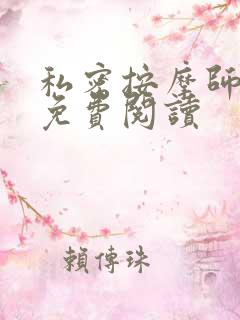 私密按摩師
免費閱讀
賴傳珠